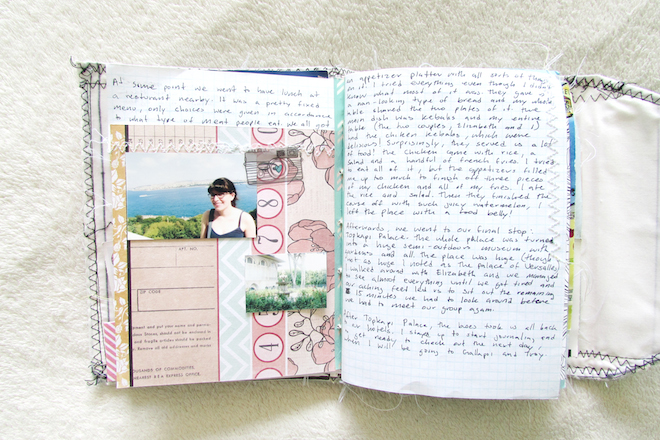 At some point we went to have lunch at
a restaurant nearby. It was a pretty fixed
menu, only choices were given in accordance
to what type of meat people eat. We all got
7
8
APT. NO.
ZIP CODE
errors. Always put your name and
address. Stores should not be
and fragile articles should be packed
RATINGS OF COMMODITIES.
EXPRESS OFFICE.
an appetizer platter with all sorts of things
on it. I tried everything even though I didn't
know what most of it was. They gave us
a nan-looking type of bread and my whole
table shared like two plates of it. The
main dish was kebabs and my entire
table (the two couples, Elizabeth and I)
had the chicken kebabs, which were
delicious! Surprisingly, they served us a lot
of food! The chicken came with rice, a
salad and a handful of french fries. I tried
to eat all of it, but the appetizers filled
me up too much to finish off three pieces
of my chicken and all of my fries. I ate
the rice and salad. Then they finished the
course off with such juicy watermelon, I
left the place with a food belly!
Afterwards, we went to our final stop:
Topkapi Palace. The whole palace was turned
into a huge semi-outdoor museum with
and all. The place was huge (though
not as huge I noted as the palace of Versailles)
I walked around with Elizabeth and we managed
to see almost everything until we got tired and
our aching feet led us to sit out the remaining
15 minutes we had to look around before
we had to meet our group again.
After Topkapi Palace, the buses took us all back
to our hotels. I stayed up to start journaling and
get ready to check out the next day,
when I will be going to Gallipoli and Troy